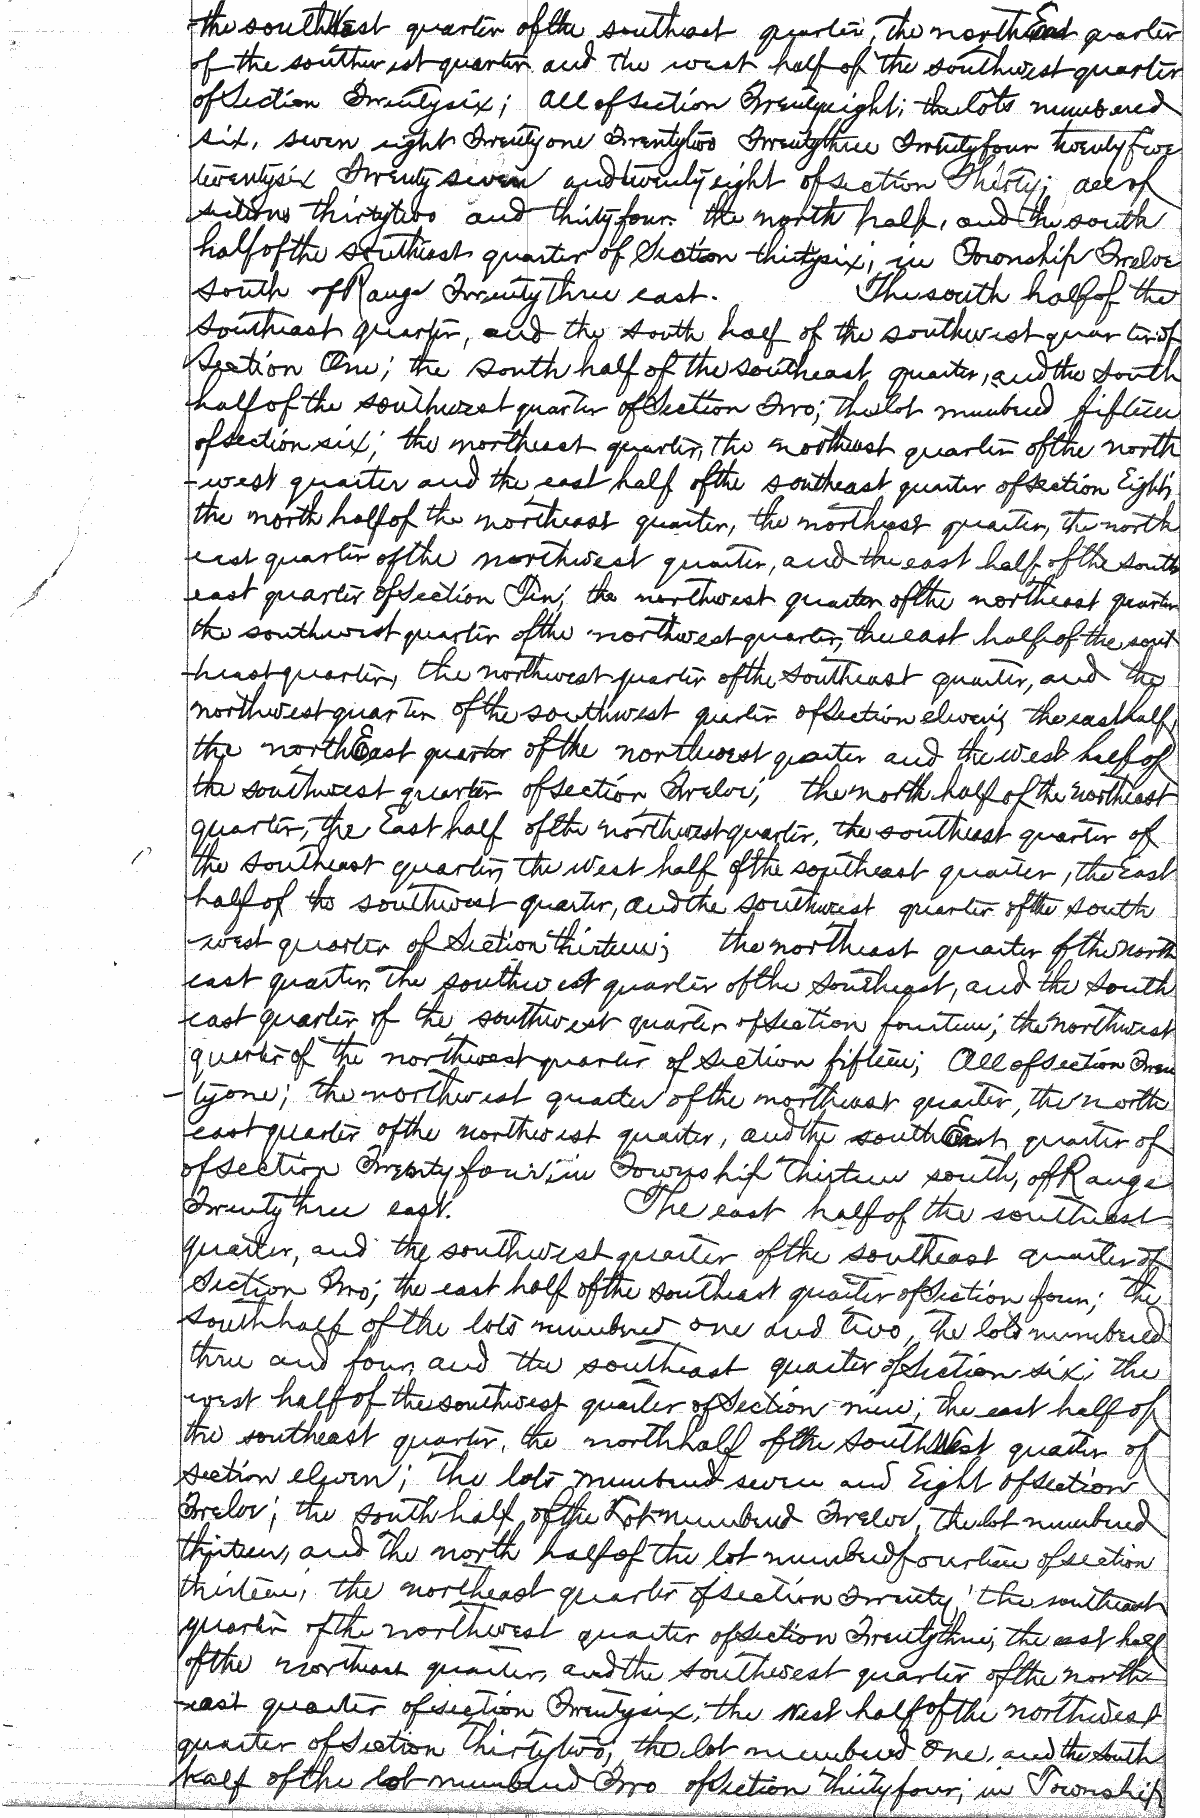 the southWest quarter of the southeast quarter, the northEast quarter
of the southwest quarter and the west half of the southwest quarter
of Section Twentysix; all of section Twentyeight; the lots numbered
six, seven eight Twentyone Twentytwo Twentythree Twentyfour twentyfive
twentysix Twentyseven and twentyeight of section Thirty; all of
sections thirtytwo and thirtyfour. the north half, and the south
half of the southeast quarter of Section thirtysix; in Township Twelve
South of Range Twentythree east. The south half of the
Southeast quarter, and the south half of the southwest quarter of
Section One; the south half of the southeast quarter, and the south
half of the southwest quarter of Section Two; the lot numbered fifteen
of section six; the northeast quarter, the northeast quarter of the north
-west quarter and the east half of the southeast quarter of section Eight;
the north half of the northeast quarter, the northeast quarter, the north
east quarter of the northwest quarter, and the east half of the south
east quarter of section Ten; the northwest quarter of the northeast quarter
the southwest quarter of the northwest quarter, the east half of the sout
-heast quarter, the northwest quarter of the southeast quarter, and the
northwest quarter of the southwest qurter of section eleven; the east half,
the northEast quarter of the northwest quarter and the west half of
the southwest quarter of section Twelve; the north half of the northeast
quarter, the East half of the northwest quarter, the southeast quarter of
the southeast quarter, the west half of the southeast quarter, the East
half of the southwest quarter, and the southwest quarter of the south
-west quarter of Section thirteen; the northeast quarter of the north
east quarter, the southwest quarter of the southeast, and the south
east quarter of the southwest quarter of section fourteen; the northwest
quarter of the northwest quarter of section fifteen; All of section Twen
-tyone; the northwest quarter of the northeast quarter, the north
east quarter of the northwest quarter, and the southEast quarter of
of section Twentyfour; in Township thirteen south, of Range
Twentythree east. The east half of the southeast
quarter, and the southwest quarter of the southeast quarter of
Section Two; the east half of the southeast quarter of Section four; the
south half of the lots numbered one and two, the lots numbered
three and four, and the southeast quarter of Section six; the
west half of the southwest quarter of Section nine; the east half of
the southeast quarter, the north half of the southWest quarter of
section eleven; the lots numbered seven and Eight of section
Twelve; the south half of the Lot numbered Twelve, the lot numbered
thirteen, and the north half of the lot numbered fourteen of section
thirteen; the northeast quarter of section Twenty; the southeast
quarter of the northwest quarter of section Twentythree; the east half
of the northeast quarter, and the southwest quarter of the north
-east quarter of section Twentysix; the West half of the northwest
quarter of Section Thirtytwo; the lot numbered One, and the south
half of the lot numbered Two of Section Thirtyfour; in Township